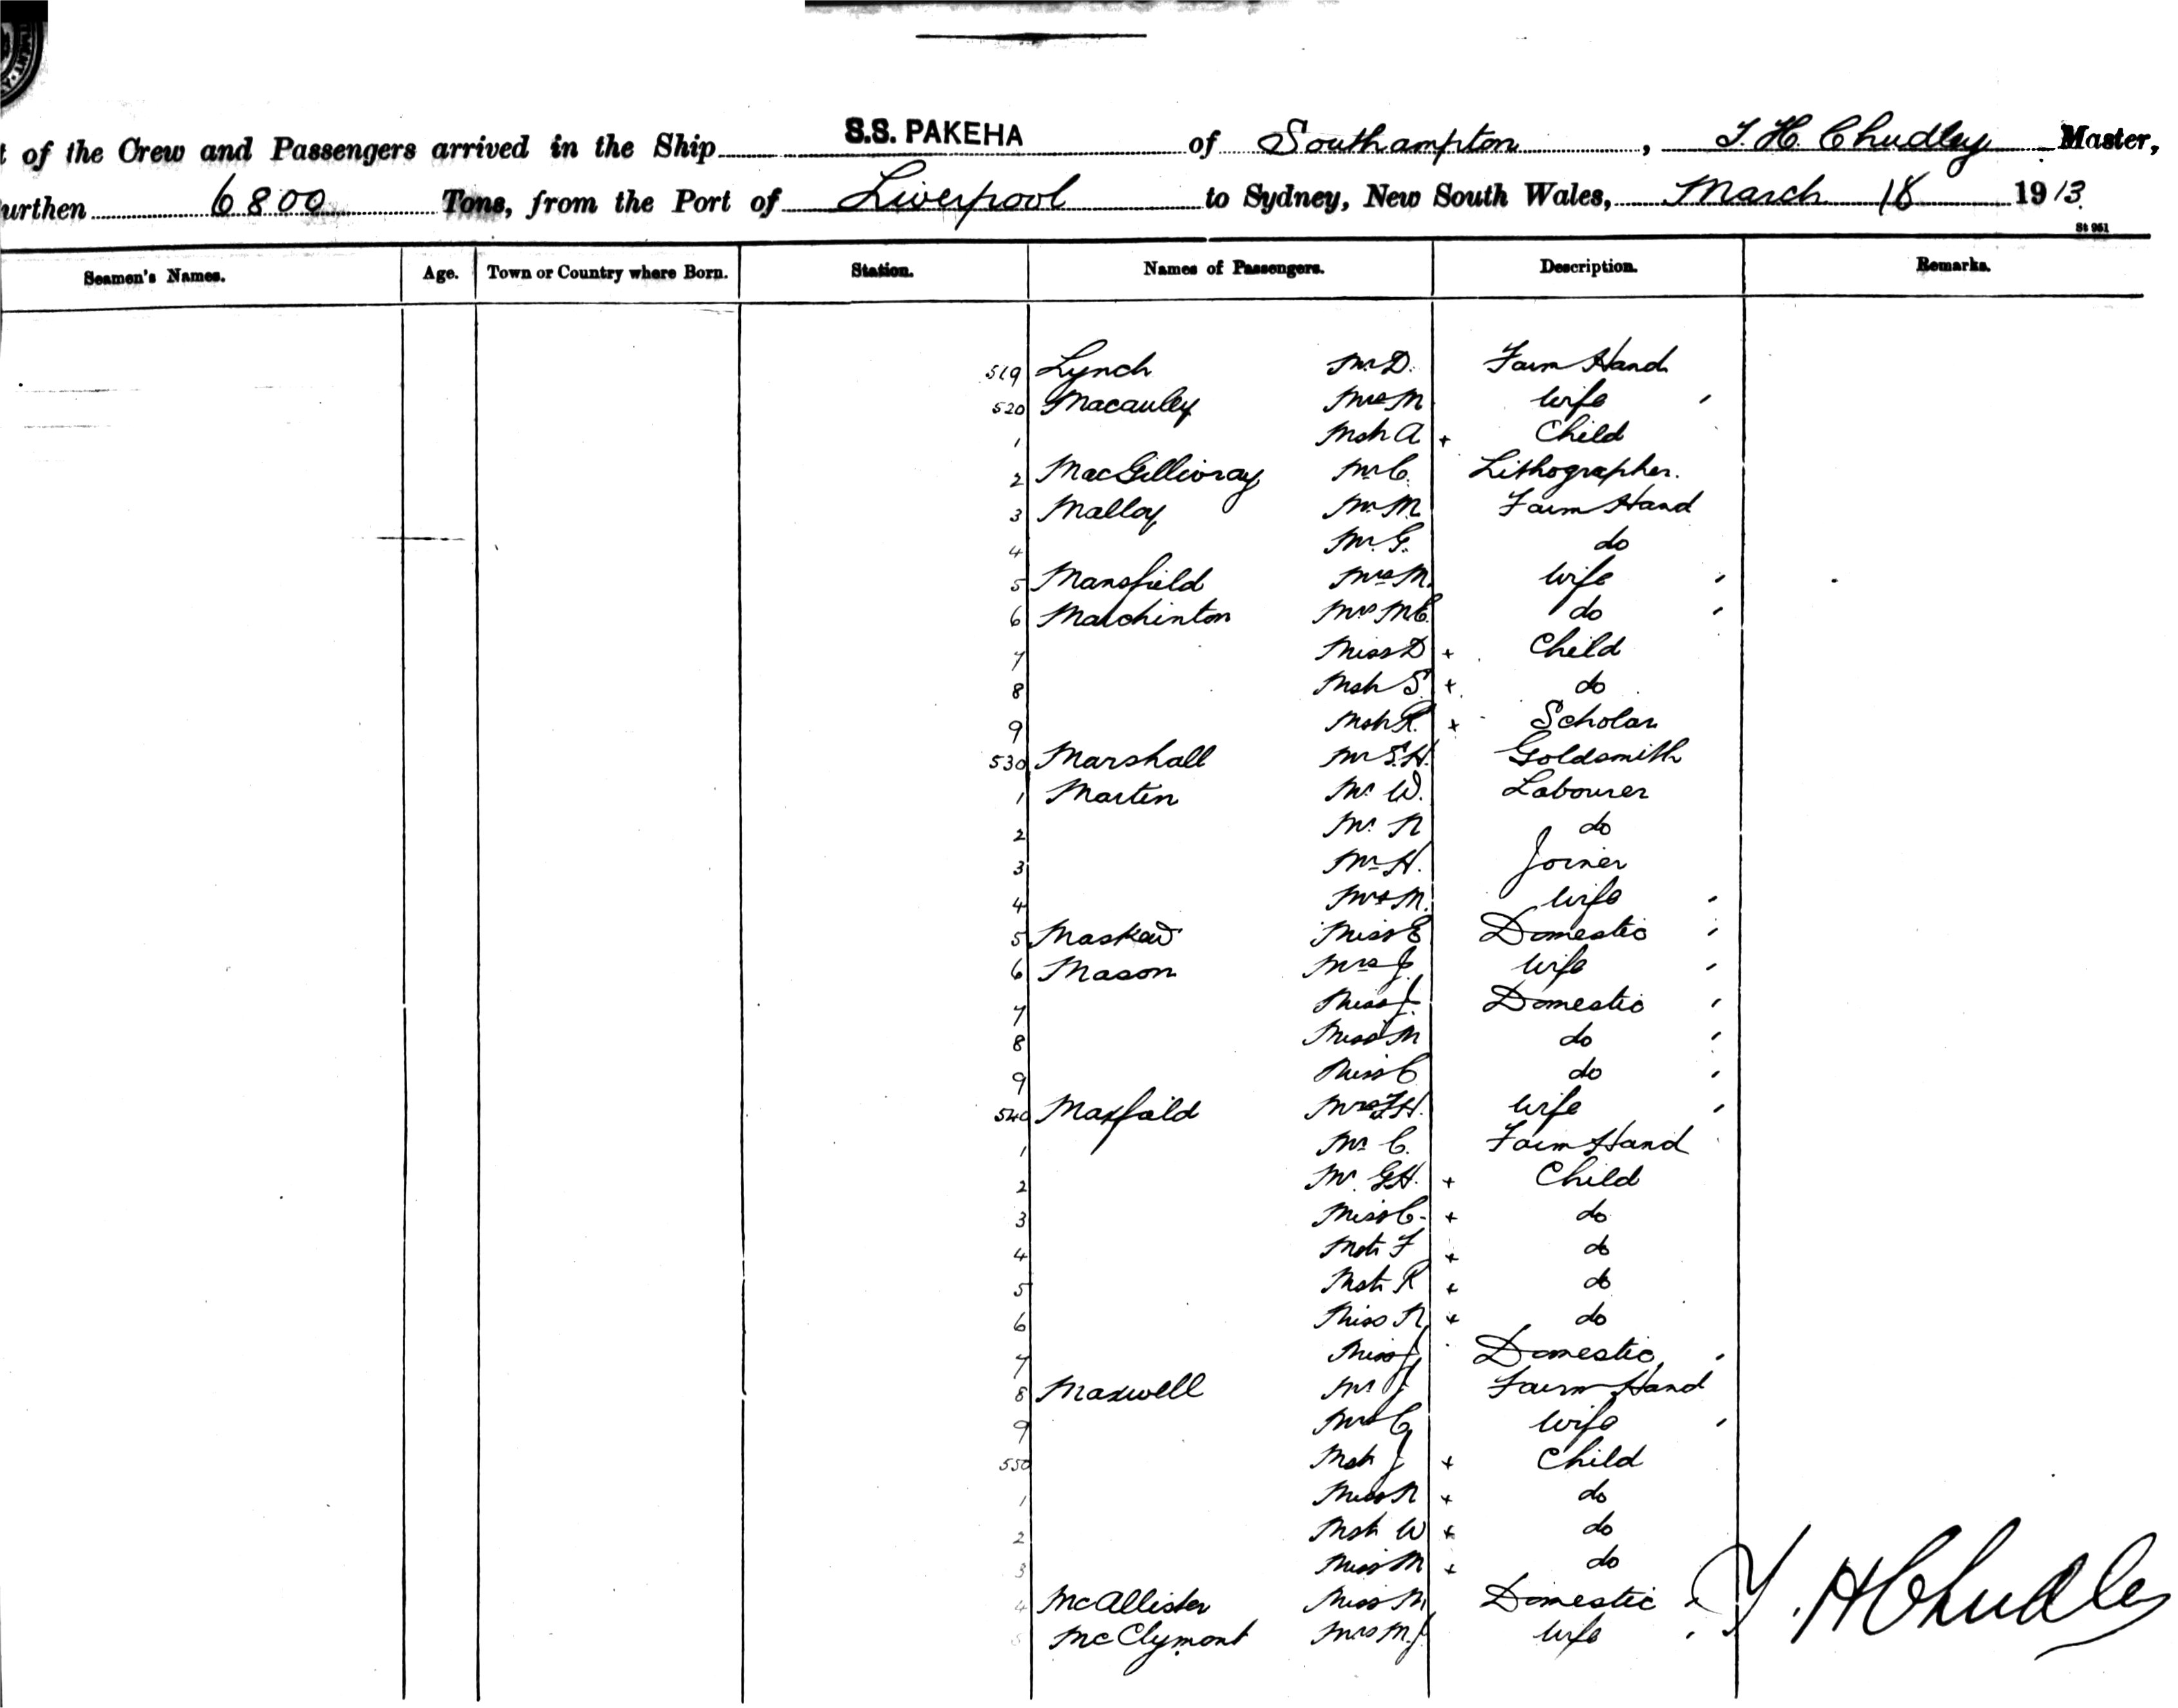 t of the Crew and Passengers arrived in the Ship S.S. PAKEHA of Southampton, T. H. Chudley Master,
urthen 6800 Tons, from the Port of Liverpool to Sydney, New South Wales, March 18 1913.
St 961
Seamen's Names. Age. Town or Country where Born. Station. Names of Passengers. Description. Remarks.
519 Lynch Mr D. Farm Hand
520 Macauley Mrs M wife
1 Mstr A + Child
2 MacGillivray Mr C. Lithographer.
3 Malloy Mr M Farm Hand
4 Mr G. do
5 Mansfield Mrs M. wife
6 Marchinton Mrs M.E. do
7 Miss D + Child
8 Mstr S + do
9 Mstr R. + Scholar
530 Marshall Mr S.H. Goldsmith
1 Martin Mr W. Labourer
2 Mr N do
3 Mr H. Joiner
4 Mrs M. wife
5 Maskew Miss E Domestic
6 Mason Mrs J. wife
7 Miss J. Domestic
8 Miss M do
9 Miss C do
540 Maxfield Mrs F.H. wife
1 Mr C. Farm Hand
2 Mr. G.H. + Child
3 Miss C. + do
4 Mstr F + do
5 Mstr R + do
6 Miss N + do
7 Miss J Domestic
8 Maxwell Mr J Farm Hand
9 Mrs C wife
550 Mstr J + Child
1 Miss N + do
2 Mstr W + do
3 Miss M + do
4 McAllister Miss M Domestic
5 McClymont Mrs M.J wife
T. H Chudley